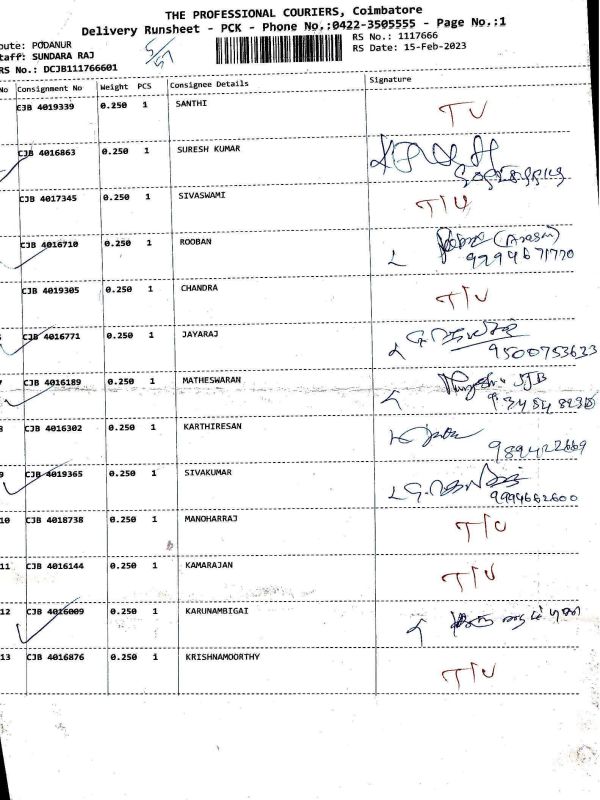 THE PROFESSIONAL COURIERS, Coimbatore
Delivery Runsheet - PCK - Phone No.:0422-3505555 - Page No.:1
oute: PODANUR RS No.: 1117666
taff: SUNDARA RAJ RS Date: 15-Feb-2023
RS No.: DCJB111766601
No Consignment No Weight PCS Consignee Details Signature
CJB 4019339 0.250 1 SANTHI T/U
CJB 4016863 0.250 1 SURESH KUMAR
CJB 4017345 0.250 1 SIVASWAMI T/U
CJB 4016710 0.250 1 ROOBAN
CJB 4019305 0.250 1 CHANDRA T/U
CJB 4016771 0.250 1 JAYARAJ
9500753623
7 CJB 4016189 0.250 1 MATHESWARAN
8 CJB 4016302 0.250 1 KARTHIRESAN
989422669
9 CJB 4019365 0.250 1 SIVAKUMAR
9994662600
10 CJB 4018738 0.250 1 MANOHARRAJ T/U
11 CJB 4016144 0.250 1 KAMARAJAN T/U
12 CJB 4016009 0.250 1 KARUNAMBIGAI
13 CJB 4016876 0.250 1 KRISHNAMOORTHY T/U